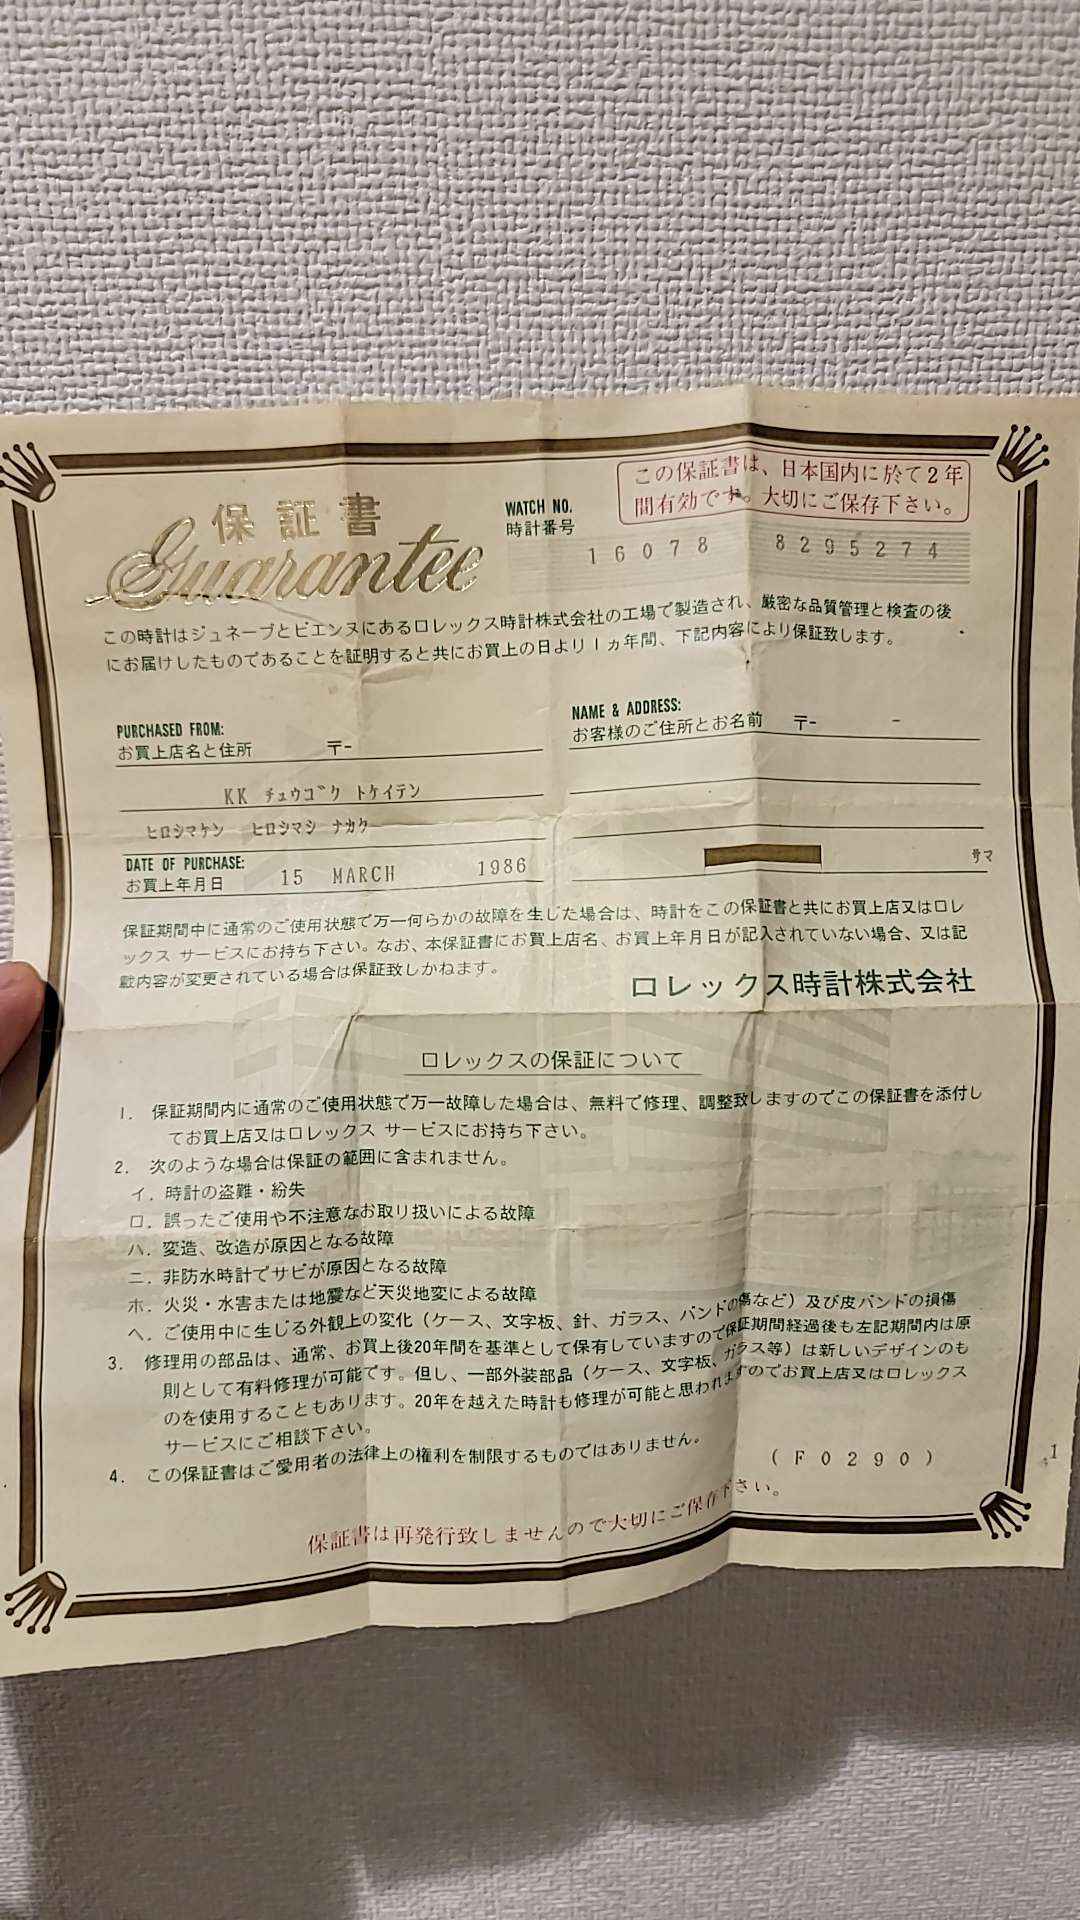 この保証書は、日本国内に於て2年
間有効です。大切にご保存下さい。
保証書
Guarantee
WATCH NO.
時計番号
16078 8295274
この時計はジュネーブとビエンヌにあるロレックス時計株式会社の工場で製造され、厳密な品質管理と検査の後
にお届けしたものであることを証明すると共にお買上の日より1ヵ年間、下記内容により保証致します。
PURCHASED FROM:
お買上店名と住所 〒-
KK チュウゴク トケイテン
ヒロシマケン ヒロシマシ ナカク
DATE OF PURCHASE:
お買上年月日 15 MARCH 1986
NAME & ADDRESS:
お客様のご住所とお名前 〒- -
サマ
保証期間中に通常のご使用状態で万一何らかの故障を生じた場合は、時計をこの保証書と共にお買上店又はロレ
ックス サービスにお持ち下さい。なお、本保証書にお買上店名、お買上年月日が記入されていない場合、又は記
載内容が変更されている場合は保証致しかねます。
ロレックス時計株式会社
ロレックスの保証について
1. 保証期間内に通常のご使用状態で万一故障した場合は、無料で修理、調整致しますのでこの保証書を添付し
てお買上店又はロレックス サービスにお持ち下さい。
2. 次のような場合は保証の範囲に含まれません。
イ. 時計の盗難・紛失
ロ. 誤ったご使用や不注意なお取り扱いによる故障
ハ. 変造、改造が原因となる故障
ニ. 非防水時計でサビが原因となる故障
ホ. 火災・水害または地震など天災地変による故障
ヘ. ご使用中に生じる外観上の変化（ケース、文字板、針、ガラス、バンドの傷など）及び皮バンドの損傷
3. 修理用の部品は、通常、お買上後20年間を基準として保有していますので保証期間経過後も左記期間内は原
則として有料修理が可能です。但し、一部外装部品（ケース、文字板、ガラス等）は新しいデザインのも
のを使用することもあります。20年を越えた時計も修理が可能と思われますのでお買上店又はロレックス
サービスにご相談下さい。
4. この保証書はご愛用者の法律上の権利を制限するものではありません。
(F0290)
1
保証書は再発行致しませんので大切にご保存下さい。